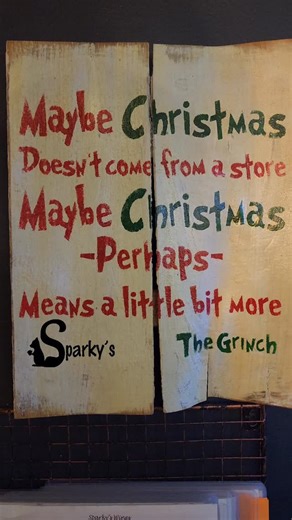 Maybe Christmas
Doesn't come from a store
Maybe Christmas
-Perhaps-
Means a little bit more
Sparky's
The Grinch
Sparky's Wines